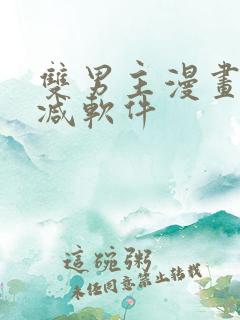 雙男主漫畫
減軟件
這碗粥
未经同意禁止转载